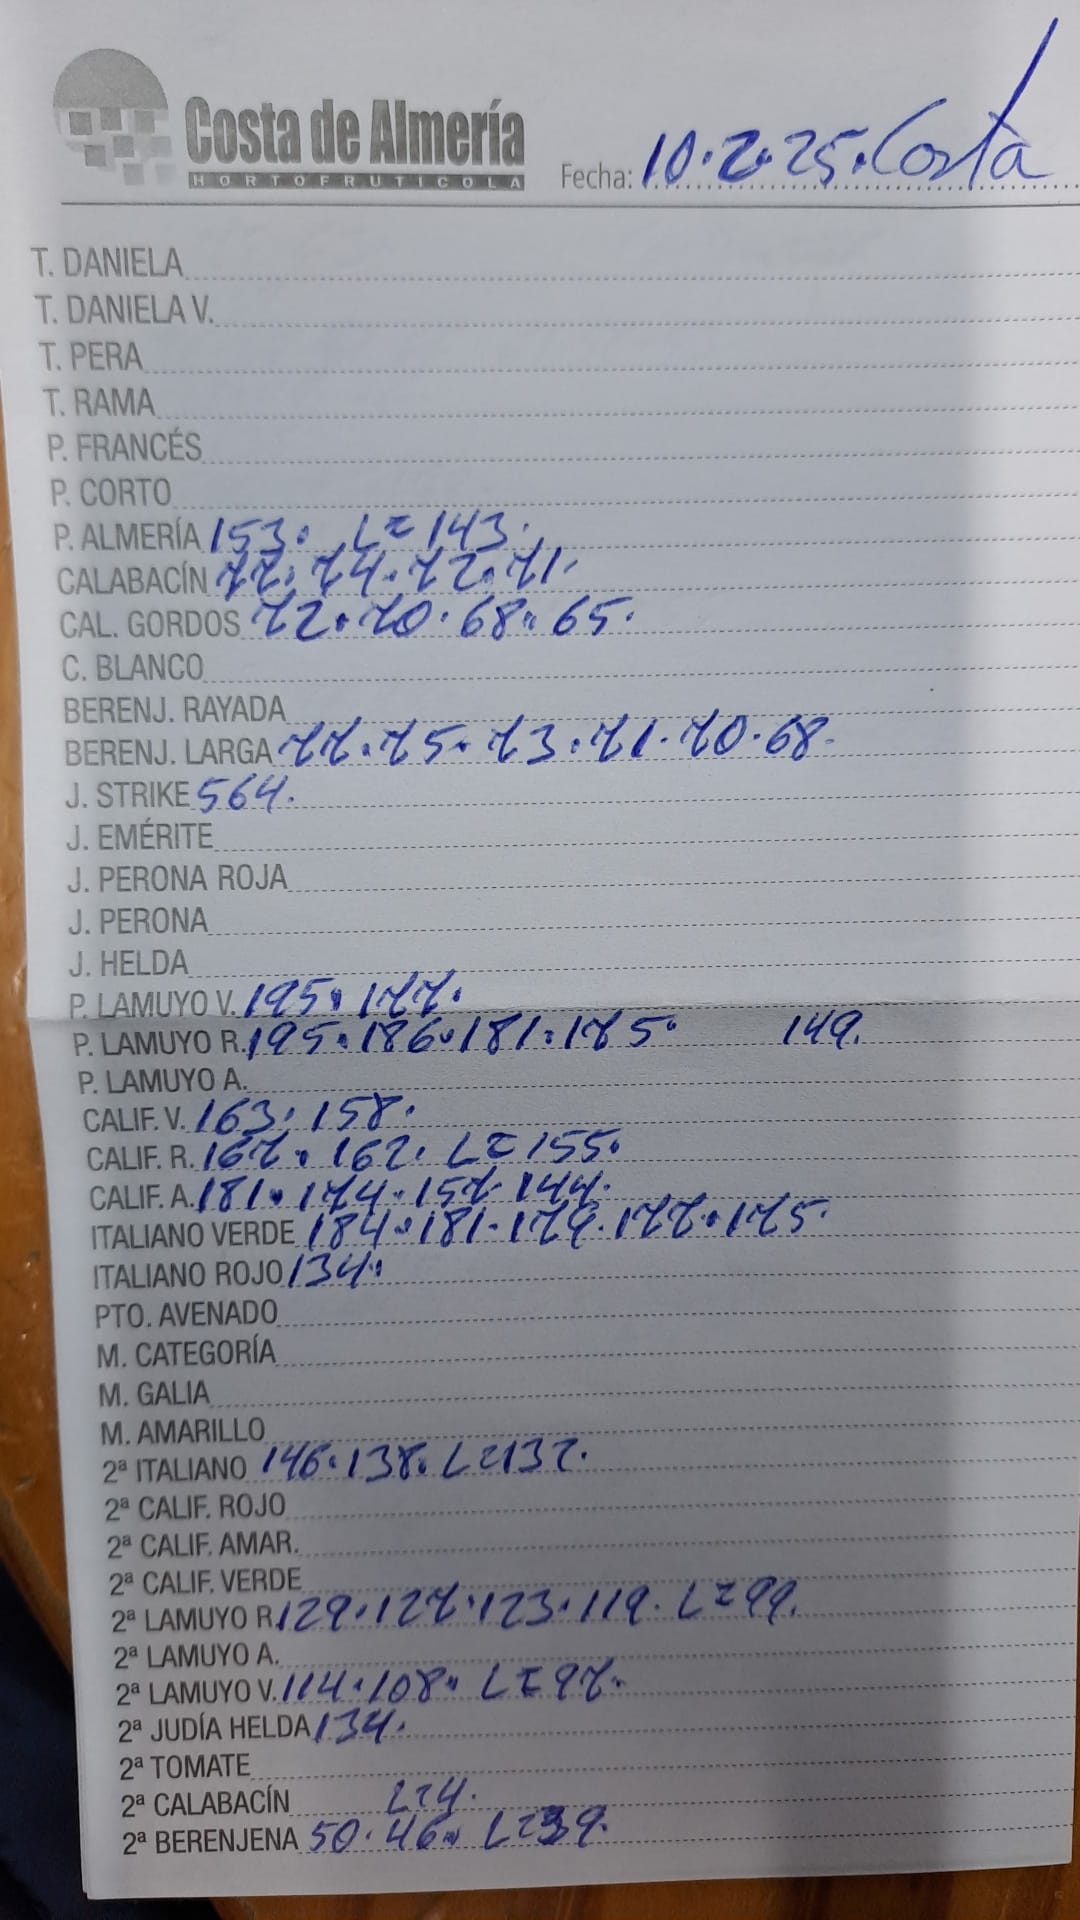 Costa de Almería
HORTOFRUTICOLA
Fecha: 10.2.25. Costa
T. DANIELA
T. DANIELA V.
T. PERA
T. RAMA
P. FRANCÉS
P. CORTO
P. ALMERÍA 153. L=143.
CALABACÍN 77. 74. 72. 71.
CAL. GORDOS 72. 70. 68. 65.
C. BLANCO
BERENJ. RAYADA
BERENJ. LARGA 77. 75. 73. 71. 70. 68.
J. STRIKE 564.
J. EMÉRITE
J. PERONA ROJA
J. PERONA
J. HELDA
P. LAMUYO V. 195. 177.
P. LAMUYO R. 195. 186. 181. 175. 149.
P. LAMUYO A.
CALIF. V. 163. 158.
CALIF. R. 167. 162. L=155.
CALIF. A. 181. 174. 157. 144.
ITALIANO VERDE 184. 181. 179. 177. 175.
ITALIANO ROJO 134.
PTO. AVENADO
M. CATEGORÍA
M. GALIA
M. AMARILLO
2ª ITALIANO 146. 138. L=137.
2ª CALIF. ROJO
2ª CALIF. AMAR.
2ª CALIF. VERDE
2ª LAMUYO R. 129. 127. 123. 119. L=99.
2ª LAMUYO A.
2ª LAMUYO V. 114. 108. L=97.
2ª JUDÍA HELDA 134.
2ª TOMATE
2ª CALABACÍN L=4.
2ª BERENJENA 50. 46. L=39.